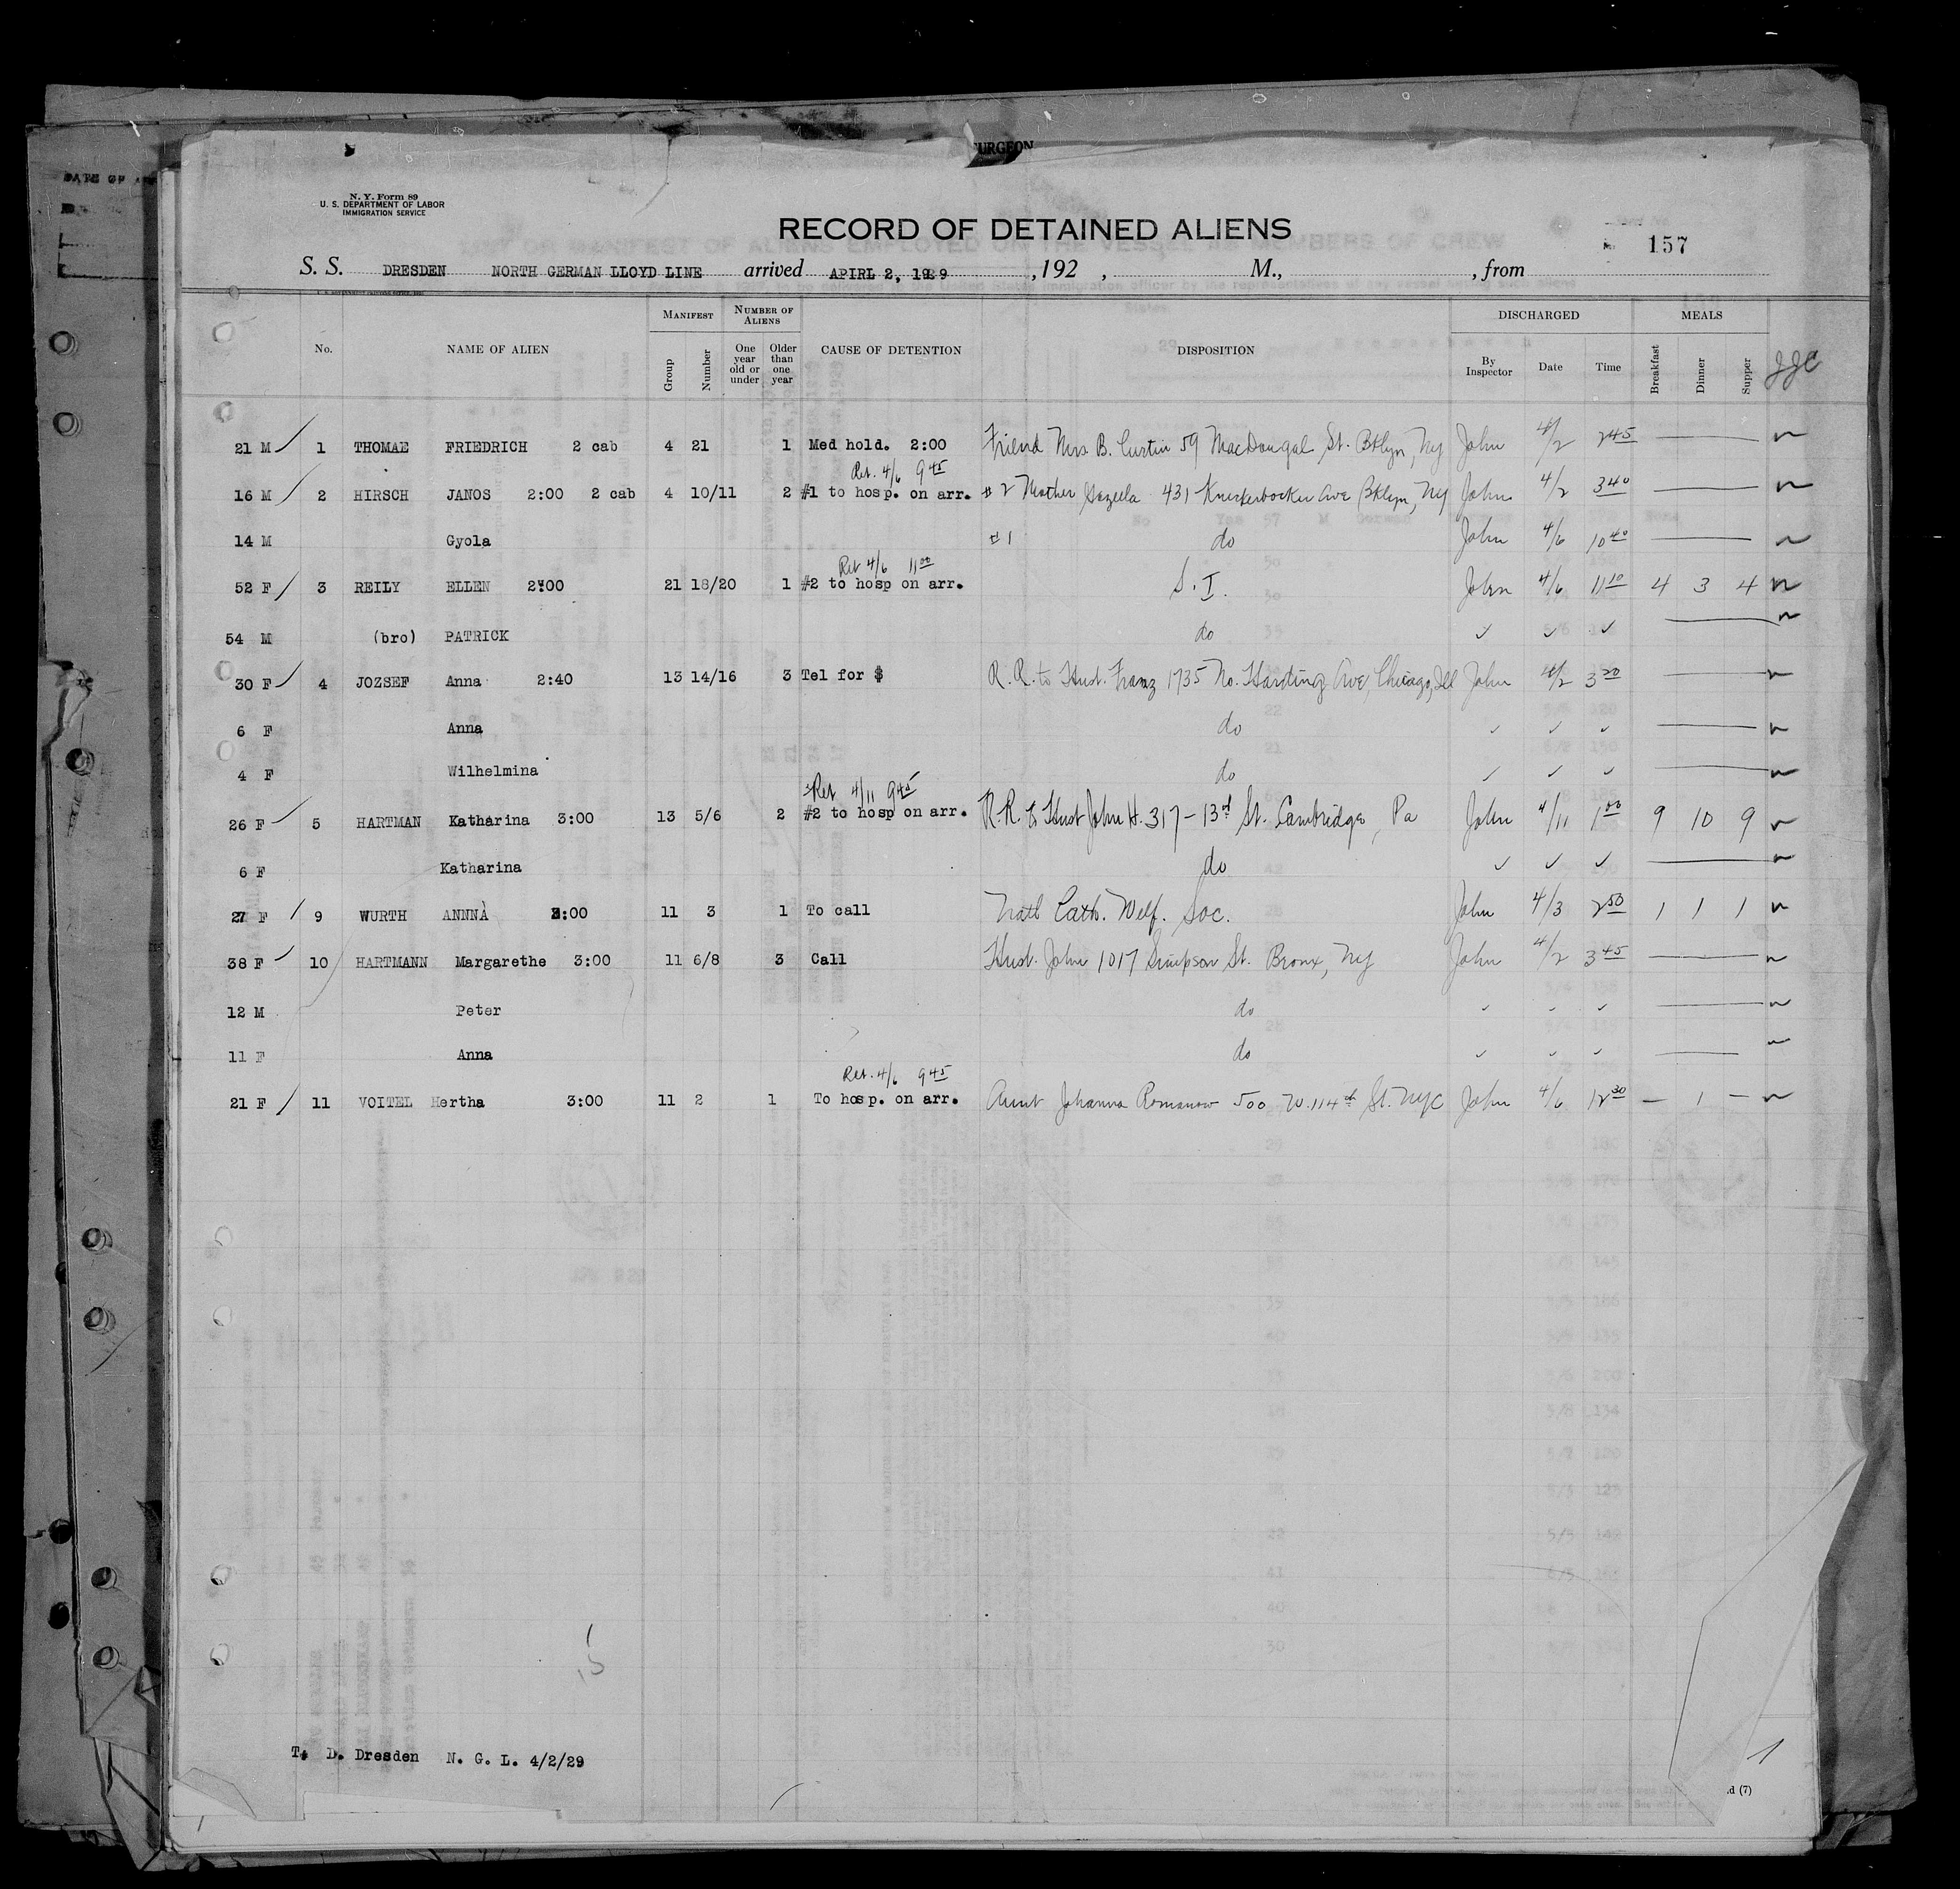 URGEON
DATE OF
N. Y. Form 89
U. S. DEPARTMENT OF LABOR
IMMIGRATION SERVICE
RECORD OF DETAINED ALIENS
157
S. S. DRESDEN NORTH GERMAN LLOYD LINE arrived APIRL 2, 1929 , 192 , M., , from
No. NAME OF ALIEN MANIFEST Group Number NUMBER OF ALIENS One year old or under Older than one year CAUSE OF DETENTION DISPOSITION DISCHARGED By Inspector Date Time MEALS Breakfast Dinner Supper JJC
21 M 1 THOMAE FRIEDRICH 2 cab 4 21 1 Med hold. 2:00 Friend Mrs B. Curtin 59 MacDougal St. Bklyn, Ny John 4/2 2 45
Ret. 4/6 9 45
16 M 2 HIRSCH JANOS 2:00 2 cab 4 10/11 2 #1 to hosp. on arr. #2 Mother 431 Knickerbocker Ave Bklyn, Ny John 4/2 3 40
14 M Gyola #1 do John 4/6 10 40
Ret 4/6 11 00
52 F 3 REILY ELLEN 2:00 21 18/20 1 #2 to hosp on arr. S. I. John 4/6 11 10 4 3 4
54 M (bro) PATRICK do ✓ ✓ ✓
30 F 4 JOZSEF Anna 2:40 13 14/16 3 Tel for $ R. R. to Husb. Franz 1735 No. Harding Ave, Chicago, Ill John 4/2 3 20
6 F Anna do ✓ ✓ ✓
4 F Wilhelmina do ✓ ✓ ✓
Ret 4/11 9 45
26 F 5 HARTMAN Katharina 3:00 13 5/6 2 #2 to hosp on arr. R. R. to Husb John H. 317 - 13th St. Cambridge, Pa John 4/11 1 00 9 10 9
6 F Katharina do ✓ ✓ ✓
27 F 9 WURTH ANNNA 3:00 11 3 1 To call Natl Cath. Welf. Soc. John 4/3 2 50 1 1 1
38 F 10 HARTMANN Margarethe 3:00 11 6/8 3 Call Husb. John 1017 Simpson St. Bronx, Ny John 4/2 3 45
12 M Peter do ✓ ✓ ✓
11 F Anna do ✓ ✓ ✓
Ret. 4/6 9 45
21 F 11 VOITEL Hertha 3:00 11 2 1 To hosp. on arr. Aunt Johanna Romanow 500 W. 114th St. NYC John 4/6 12 30 — 1 —
T. D. Dresden N. G. L. 4/2/29
d (7)